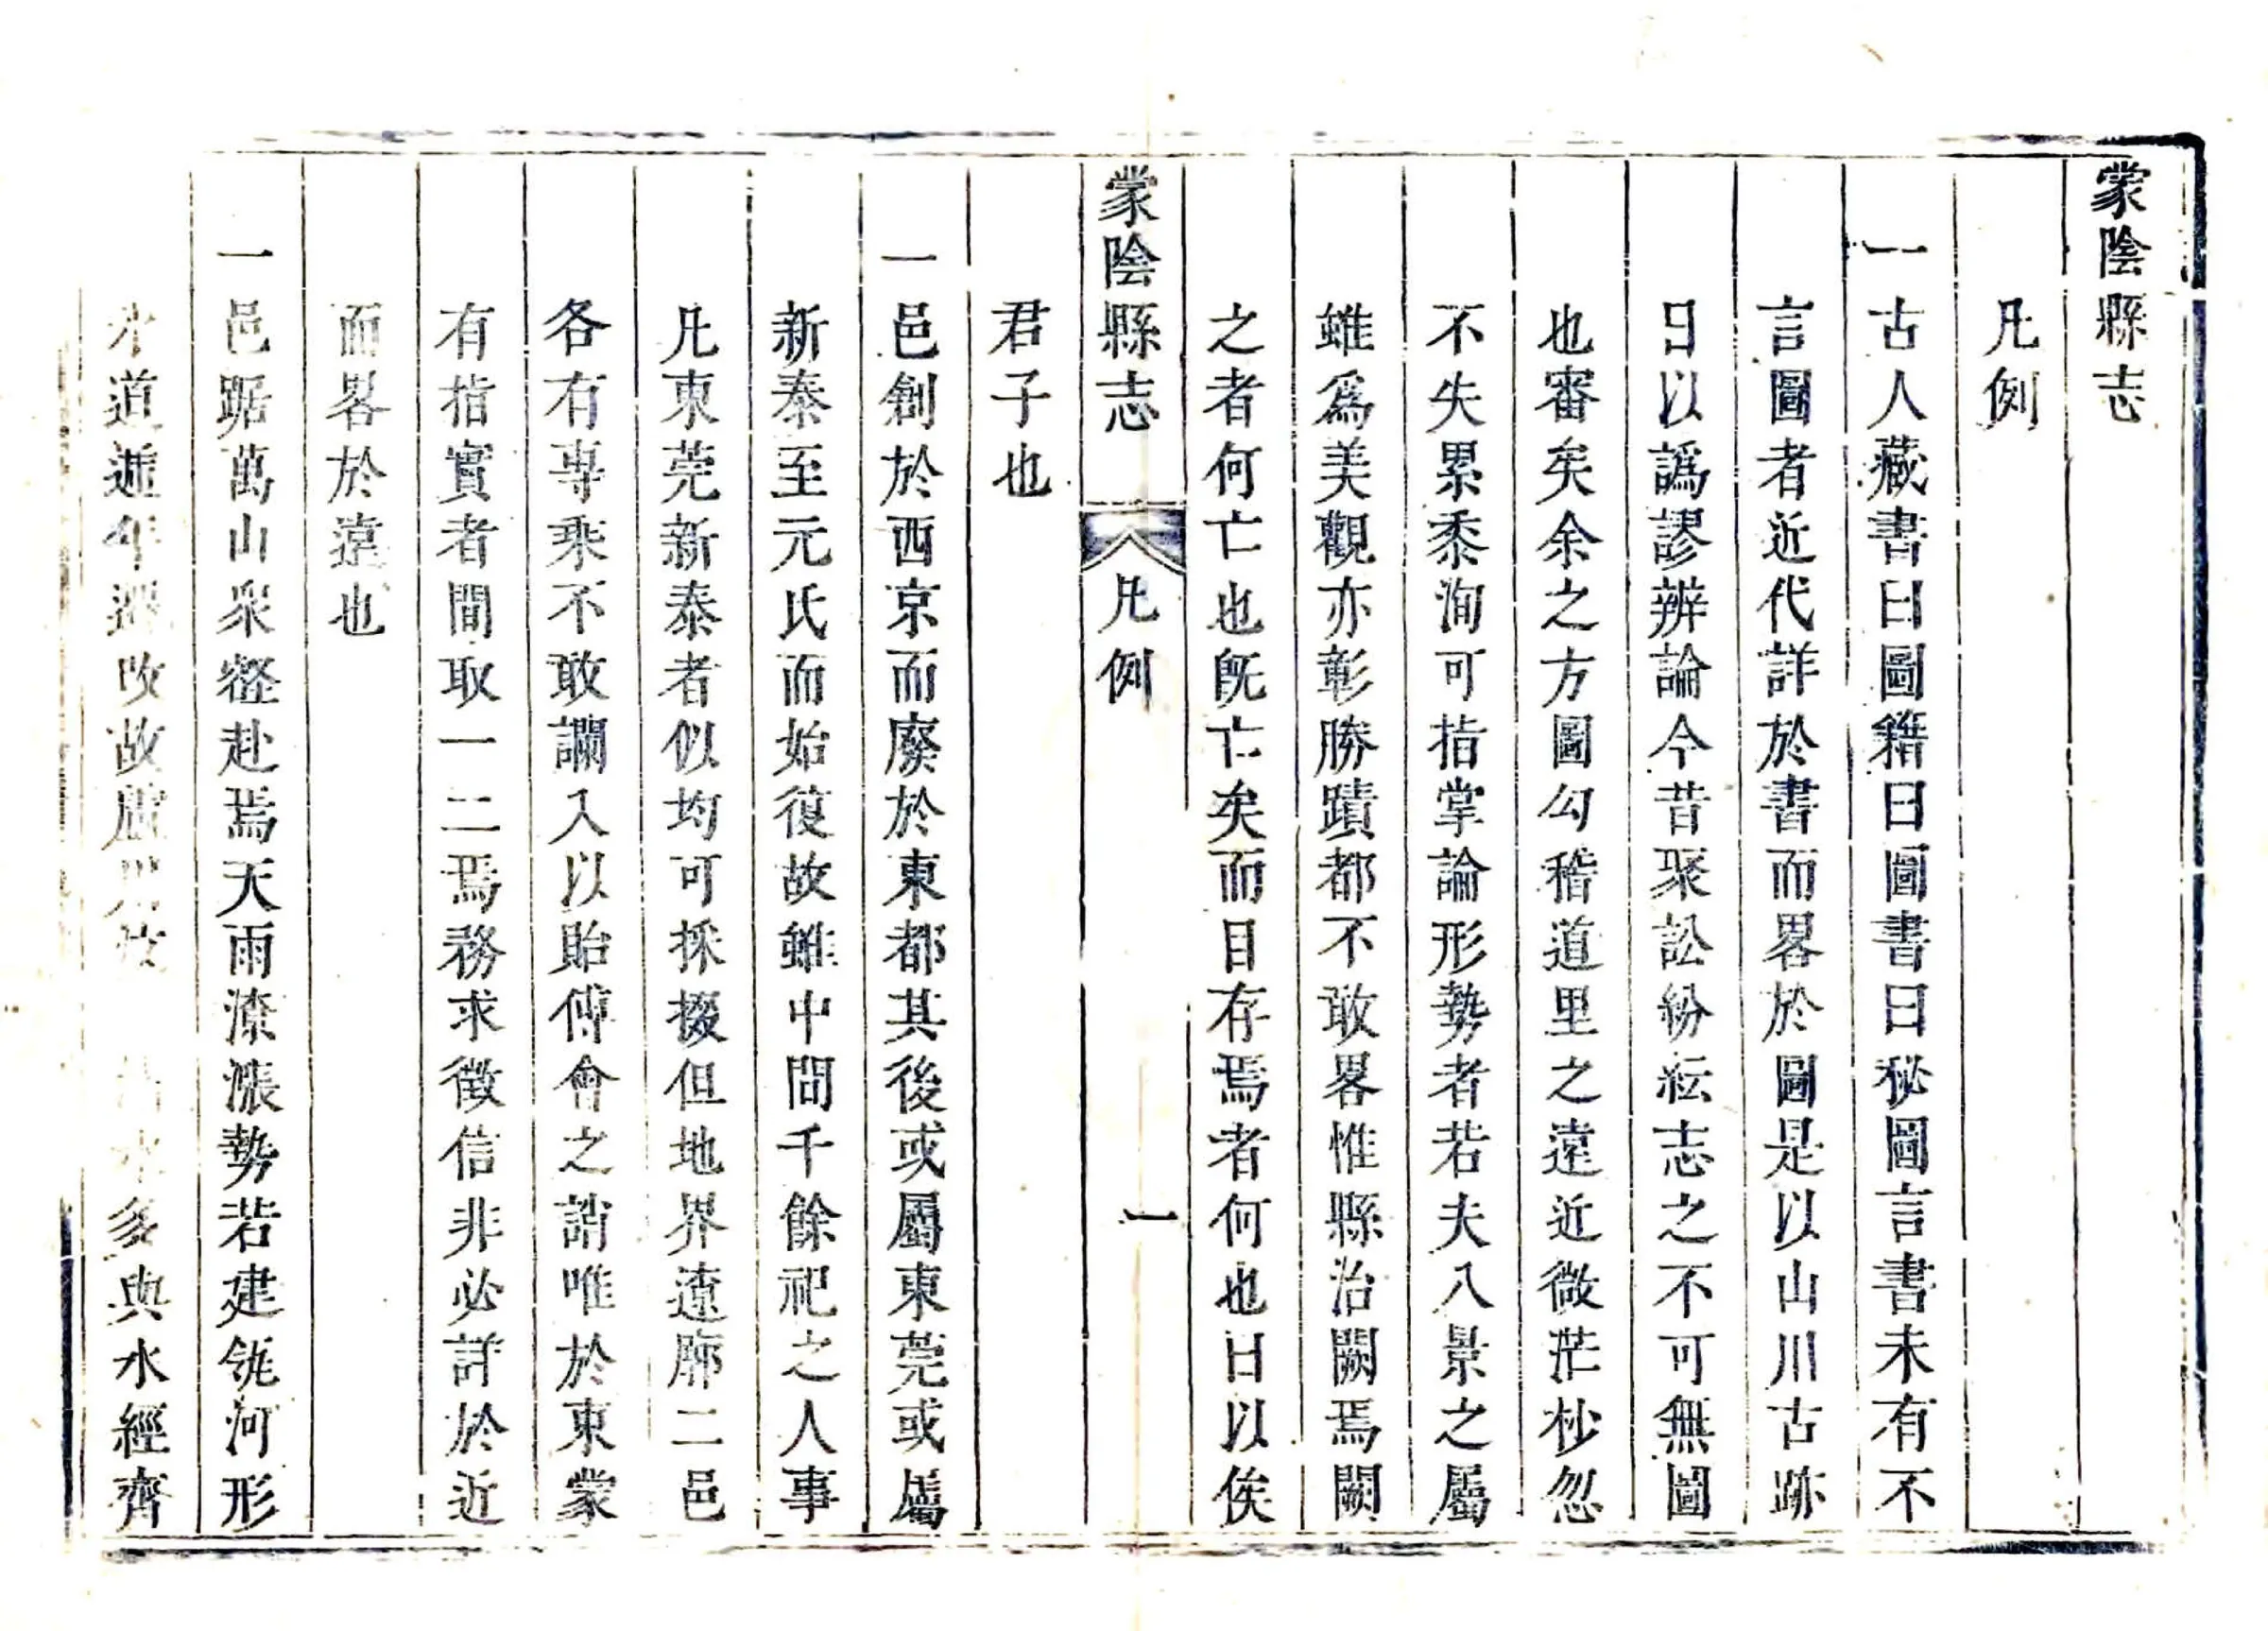 蒙陰縣志
凡例
一古人藏書曰圖籍曰圖書曰秘圖言書未有不
言圖者近代詳於書而畧於圖是以山川古跡
日以譌謬辨論今昔聚訟紛紜志之不可無圖
也審矣余之方圖勾稽道里之遠近微茫杪忽
不失累黍洵可指掌論形勢者若夫八景之屬
雖爲美觀亦彰勝蹟都不敢畧惟縣治闕焉闕
之者何亡也旣亡矣而目存焉者何也曰以俟
蒙陰縣志 凡例 一
君子也
一邑創於西京而廢於東都其後或屬東莞或屬
新泰至元氏而始復故雖中間千餘祀之人事
凡東莞新泰者似均可採掇但地界遼廓二邑
各有專乘不敢讕入以貽傅會之誚唯於東蒙
有指實者間取一二焉務求徵信非必詳於近
而畧於遠也
一邑踞萬山衆壑赴焉天雨潦漲勢若建瓴河形
水道遞年遷改故 多與水經齊